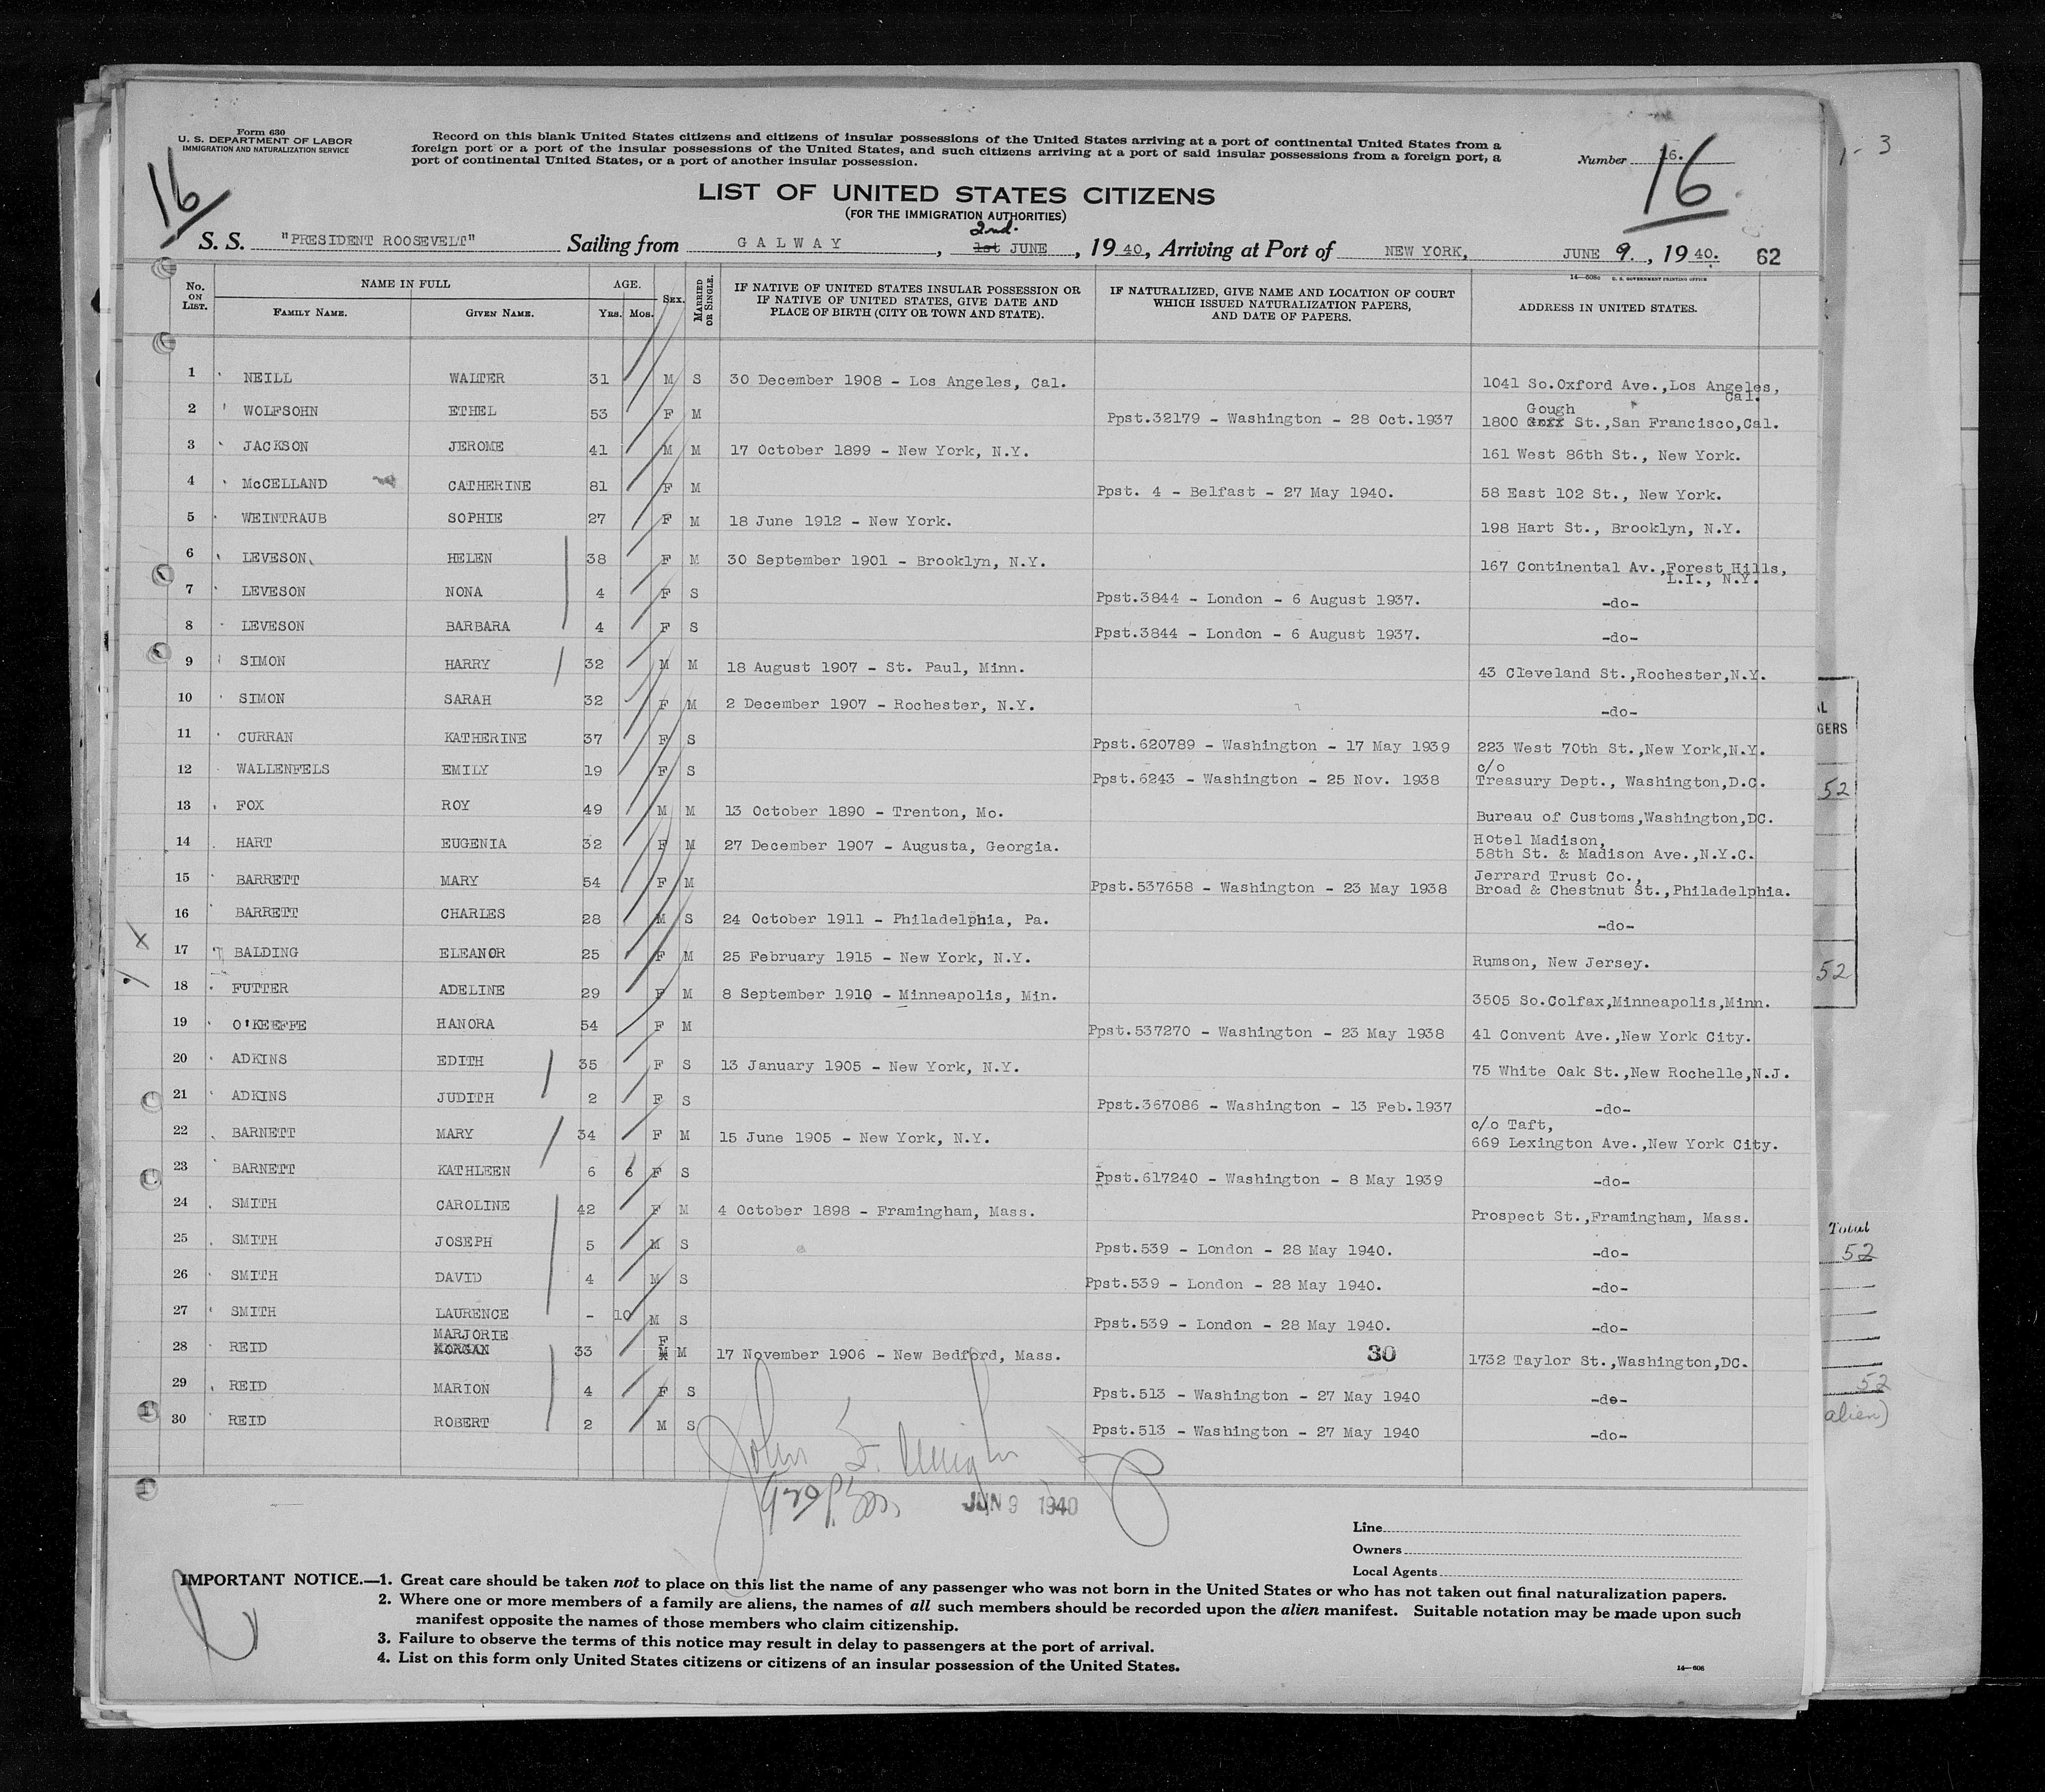 Form 630
U. S. DEPARTMENT OF LABOR
IMMIGRATION AND NATURALIZATION SERVICE
Record on this blank United States citizens and citizens of insular possessions of the United States arriving at a port of continental United States from a
foreign port or a port of the insular possessions of the United States, and such citizens arriving at a port of said insular possessions from a foreign port, a
port of continental United States, or a port of another insular possession.
Number 16.
16
16
1-3
LIST OF UNITED STATES CITIZENS
(FOR THE IMMIGRATION AUTHORITIES)
2nd.
S. S. "PRESIDENT ROOSEVELT" Sailing from GALWAY, 1st JUNE, 1940, Arriving at Port of NEW YORK, JUNE 9., 1940. 62
14—608c U. S. GOVERNMENT PRINTING OFFICE
No. ON LIST. NAME IN FULL FAMILY NAME. GIVEN NAME. AGE. Yrs. Mos. SEX. MARRIED OR SINGLE. IF NATIVE OF UNITED STATES INSULAR POSSESSION OR IF NATIVE OF UNITED STATES, GIVE DATE AND PLACE OF BIRTH (CITY OR TOWN AND STATE). IF NATURALIZED, GIVE NAME AND LOCATION OF COURT WHICH ISSUED NATURALIZATION PAPERS, AND DATE OF PAPERS. ADDRESS IN UNITED STATES.
1 NEILL WALTER 31 M S 30 December 1908 - Los Angeles, Cal. 1041 So.Oxford Ave.,Los Angeles, Cal.
2 WOLFSOHN ETHEL 53 F M Ppst.32179 - Washington - 28 Oct.1937 1800 Gough St.,San Francisco,Cal.
3 JACKSON JEROME 41 M M 17 October 1899 - New York, N.Y. 161 West 86th St., New York.
4 McCELLAND CATHERINE 81 F M Ppst. 4 - Belfast - 27 May 1940. 58 East 102 St., New York.
5 WEINTRAUB SOPHIE 27 F M 18 June 1912 - New York. 198 Hart St., Brooklyn, N.Y.
6 LEVESON HELEN 38 F M 30 September 1901 - Brooklyn, N.Y. 167 Continental Av.,Forest Hills, L.I., N.Y.
7 LEVESON NONA 4 F S Ppst.3844 - London - 6 August 1937. -do-
8 LEVESON BARBARA 4 F S Ppst.3844 - London - 6 August 1937. -do-
9 SIMON HARRY 32 M M 18 August 1907 - St. Paul, Minn. 43 Cleveland St.,Rochester,N.Y.
10 SIMON SARAH 32 F M 2 December 1907 - Rochester, N.Y. -do-
11 CURRAN KATHERINE 37 F S Ppst.620789 - Washington - 17 May 1939 223 West 70th St.,New York,N.Y.
12 WALLENFELS EMILY 19 F S Ppst.6243 - Washington - 25 Nov. 1938 c/o Treasury Dept., Washington,D.C.
13 FOX ROY 49 M M 13 October 1890 - Trenton, Mo. Bureau of Customs,Washington,DC.
14 HART EUGENIA 32 F M 27 December 1907 - Augusta, Georgia. Hotel Madison, 58th St. & Madison Ave.,N.Y.C.
15 BARRETT MARY 54 F M Ppst.537658 - Washington - 23 May 1938 Jerrard Trust Co., Broad & Chestnut St.,Philadelphia.
16 BARRETT CHARLES 28 M S 24 October 1911 - Philadelphia, Pa. -do-
17 BALDING ELEANOR 25 F M 25 February 1915 - New York, N.Y. Rumson, New Jersey.
18 FUTTER ADELINE 29 F M 8 September 1910 - Minneapolis, Min. 3505 So.Colfax,Minneapolis,Minn.
19 O'KEEFFE HANORA 54 F M Ppst.537270 - Washington - 23 May 1938 41 Convent Ave.,New York City.
20 ADKINS EDITH 35 F S 13 January 1905 - New York, N.Y. 75 White Oak St.,New Rochelle,N.J.
21 ADKINS JUDITH 2 F S Ppst.367086 - Washington - 13 Feb.1937 -do-
22 BARNETT MARY 34 F M 15 June 1905 - New York, N.Y. c/o Taft, 669 Lexington Ave.,New York City.
23 BARNETT KATHLEEN 6 6 F S Ppst.617240 - Washington - 8 May 1939 -do-
24 SMITH CAROLINE 42 F M 4 October 1898 - Framingham, Mass. Prospect St.,Framingham, Mass.
25 SMITH JOSEPH 5 M S Ppst.539 - London - 28 May 1940. -do-
26 SMITH DAVID 4 M S Ppst.539 - London - 28 May 1940. -do-
27 SMITH LAURENCE - 10 M S Ppst.539 - London - 28 May 1940. -do-
28 REID MARJORIE MORGAN 33 F M M 17 November 1906 - New Bedford, Mass. 30 1732 Taylor St.,Washington,DC.
29 REID MARION 4 F S Ppst.513 - Washington - 27 May 1940 -do-
30 REID ROBERT 2 M S Ppst.513 - Washington - 27 May 1940 -do-
JUN 9 1940
Line
Owners
Local Agents
IMPORTANT NOTICE.—1. Great care should be taken not to place on this list the name of any passenger who was not born in the United States or who has not taken out final naturalization papers.
2. Where one or more members of a family are aliens, the names of all such members should be recorded upon the alien manifest. Suitable notation may be made upon such
manifest opposite the names of those members who claim citizenship.
3. Failure to observe the terms of this notice may result in delay to passengers at the port of arrival.
4. List on this form only United States citizens or citizens of an insular possession of the United States.
14—606
GERS
52
52
Total
52
52
alien)